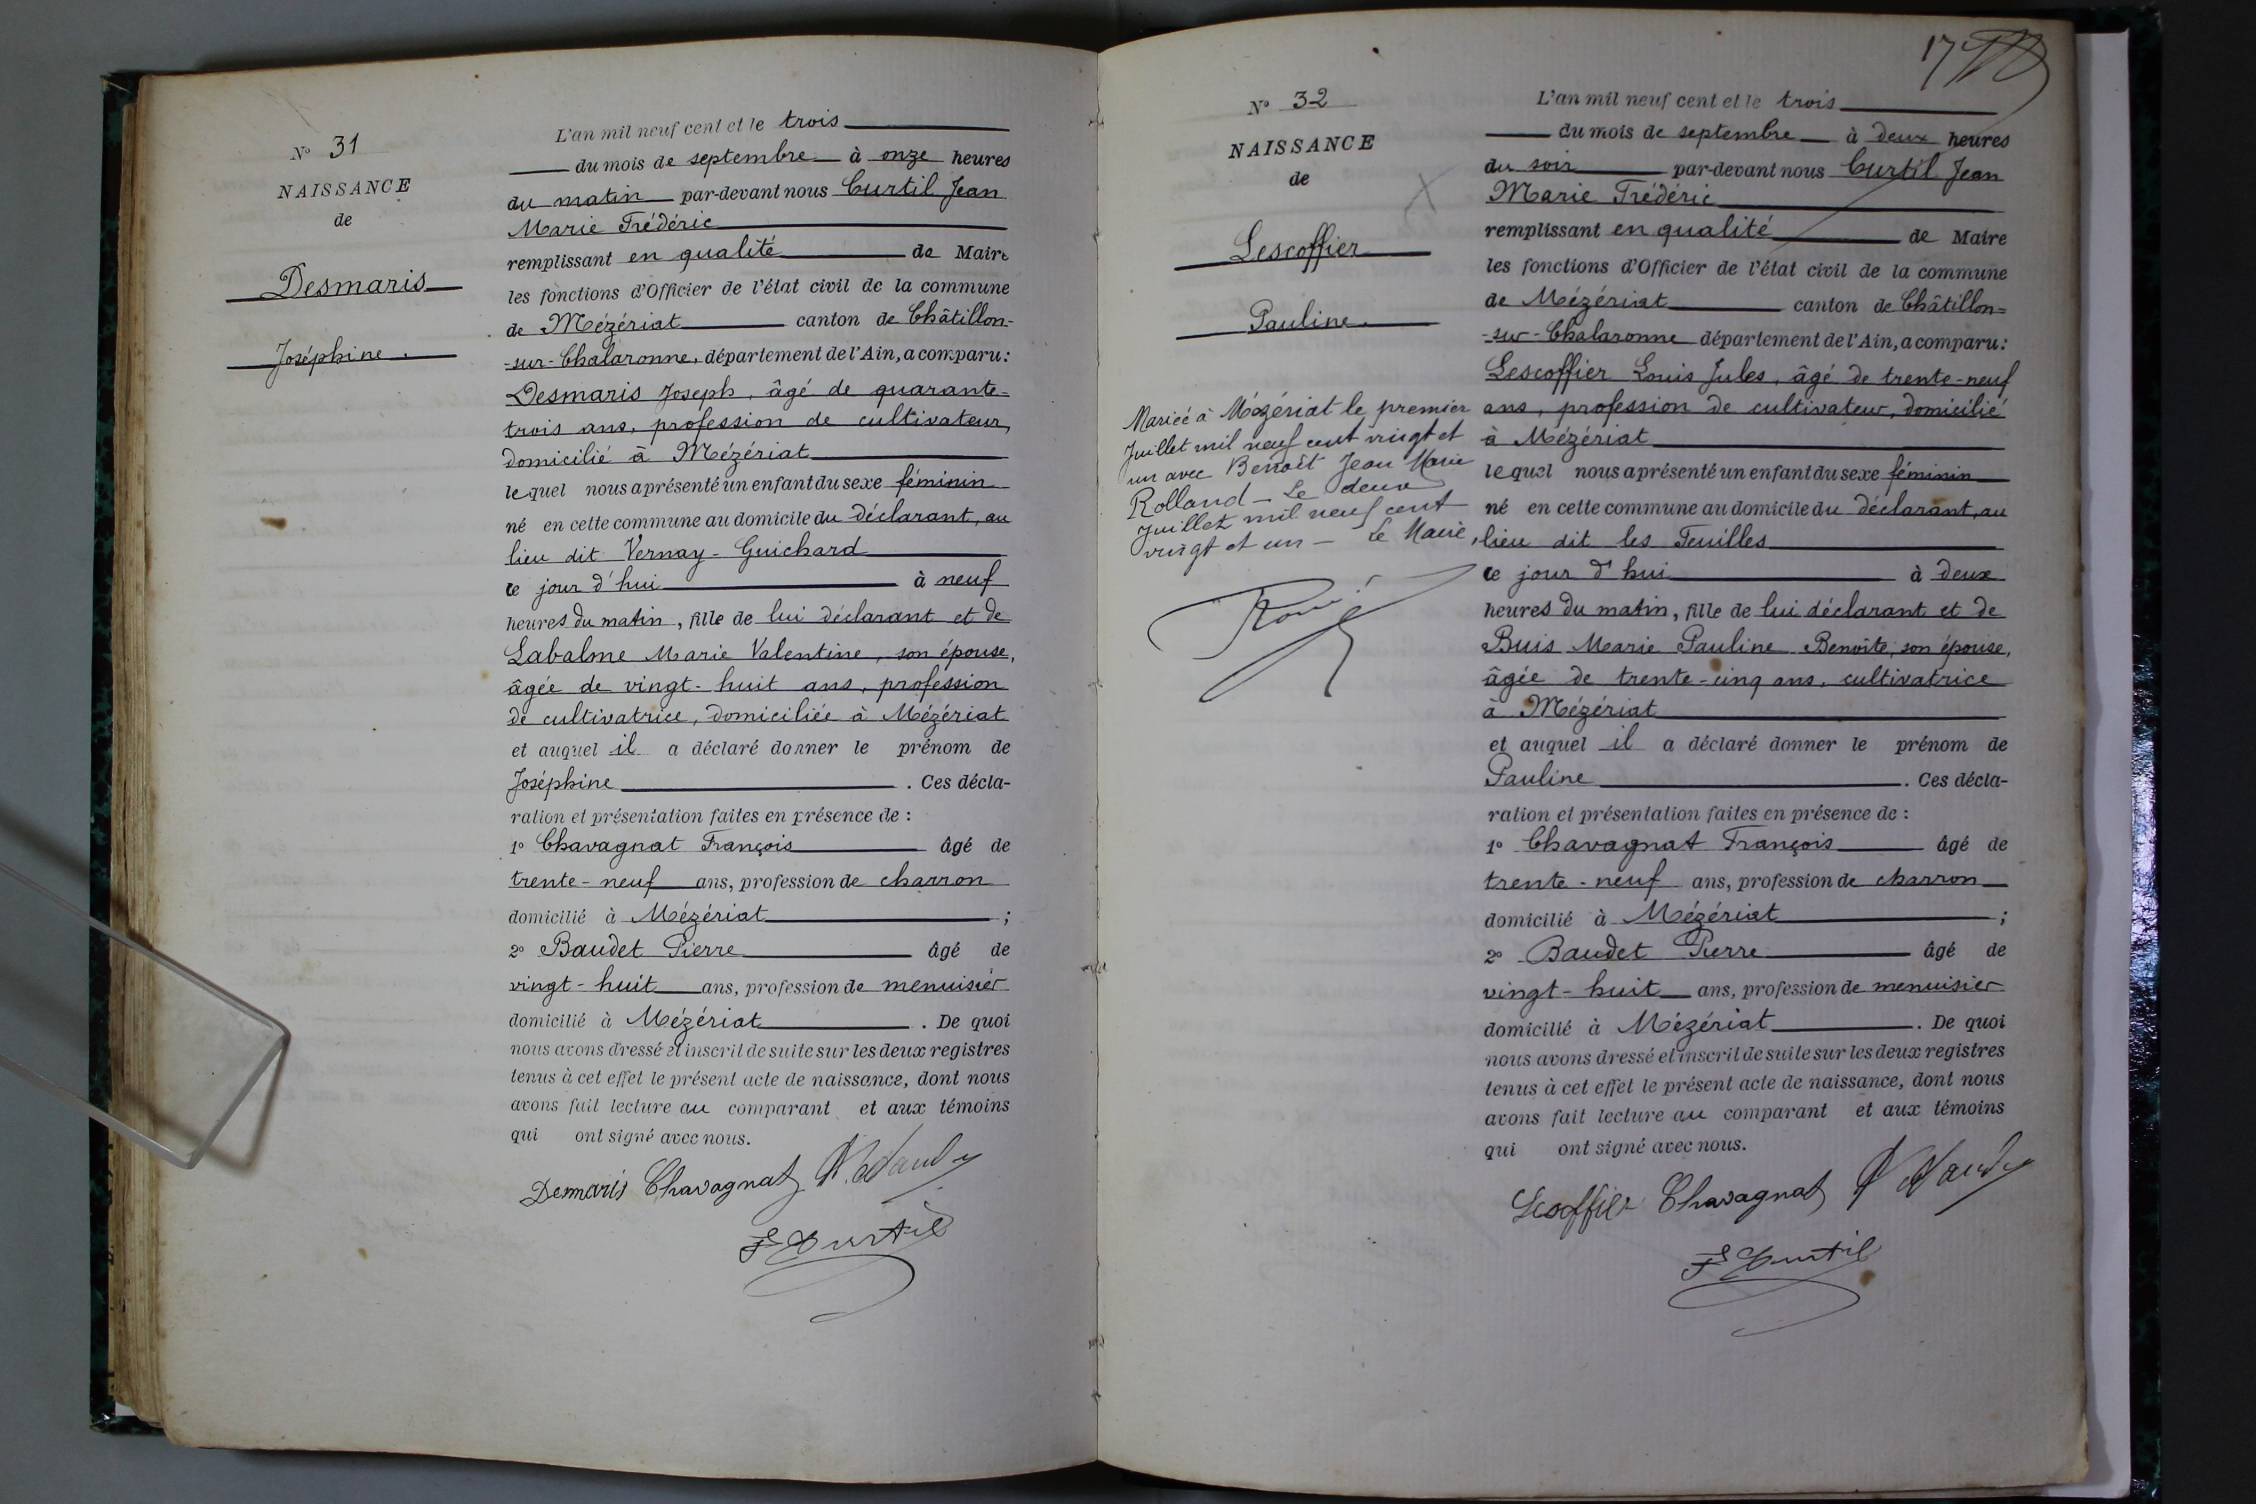 N° 31
NAISSANCE
de
Desmaris
Joséphine.
L'an mil neuf cent et le trois
du mois de septembre à onze heures
du matin par-devant nous Curtil Jean
Marie Frédéric
remplissant en qualité de Maire
les fonctions d'Officier de l'état civil de la commune
de Mézériat canton de Châtillon-
-sur-Chalaronne, département de l'Ain, a comparu:
Desmaris Joseph, âgé de quarante-
trois ans, profession de cultivateur,
domicilié à Mézériat
lequel nous a présenté un enfant du sexe féminin
né en cette commune au domicile du déclarant, au
lieu dit Vernay-Guichard
ce jour d'hui à neuf
heures du matin, fille de lui déclarant et de
Labalme Marie Valentine, son épouse,
âgée de vingt-huit ans, profession
de cultivatrice, domiciliée à Mézériat
et auquel il a déclaré donner le prénom de
Joséphine. Ces décla-
ration et présentation faites en présence de :
1° Chavagnat François âgé de
trente-neuf ans, profession de charron
domicilié à Mézériat ;
2° Baudet Pierre âgé de
vingt-huit ans, profession de menuisier
domicilié à Mézériat. De quoi
nous avons dressé et inscrit de suite sur les deux registres
tenus à cet effet le présent acte de naissance, dont nous
avons fait lecture au comparant et aux témoins
qui ont signé avec nous.
Desmaris Chavagnat
F Curtil
17
N° 32
NAISSANCE
de
Lescoffier
Pauline.
Mariée à Mézériat le premier
Juillet mil neuf cent vingt et
un avec Benoît Jean Marie
Rolland - Le deux
Juillet mil neuf cent
vingt et un - Le Maire,
L'an mil neuf cent et le trois
du mois de septembre à deux heures
du soir par-devant nous Curtil Jean
Marie Frédéric
remplissant en qualité de Maire
les fonctions d'Officier de l'état civil de la commune
de Mézériat canton de Châtillon-
-sur-Chalaronne département de l'Ain, a comparu:
Lescoffier Louis Jules, âgé de trente-neuf
ans, profession de cultivateur, domicilié
à Mézériat
lequel nous a présenté un enfant du sexe féminin
né en cette commune au domicile du déclarant, au
lieu dit les Feuilles
ce jour d'hui à deux
heures du matin, fille de lui déclarant et de
Buis Marie Pauline Benoîte, son épouse,
âgée de trente-cinq ans, cultivatrice
à Mézériat
et auquel il a déclaré donner le prénom de
Pauline. Ces décla-
ration et présentation faites en présence de :
1° Chavagnat François âgé de
trente-neuf ans, profession de charron
domicilié à Mézériat ;
2° Baudet Pierre âgé de
vingt-huit ans, profession de menuisier
domicilié à Mézériat. De quoi
nous avons dressé et inscrit de suite sur les deux registres
tenus à cet effet le présent acte de naissance, dont nous
avons fait lecture au comparant et aux témoins
qui ont signé avec nous.
Lescoffier Chavagnat
F Curtil